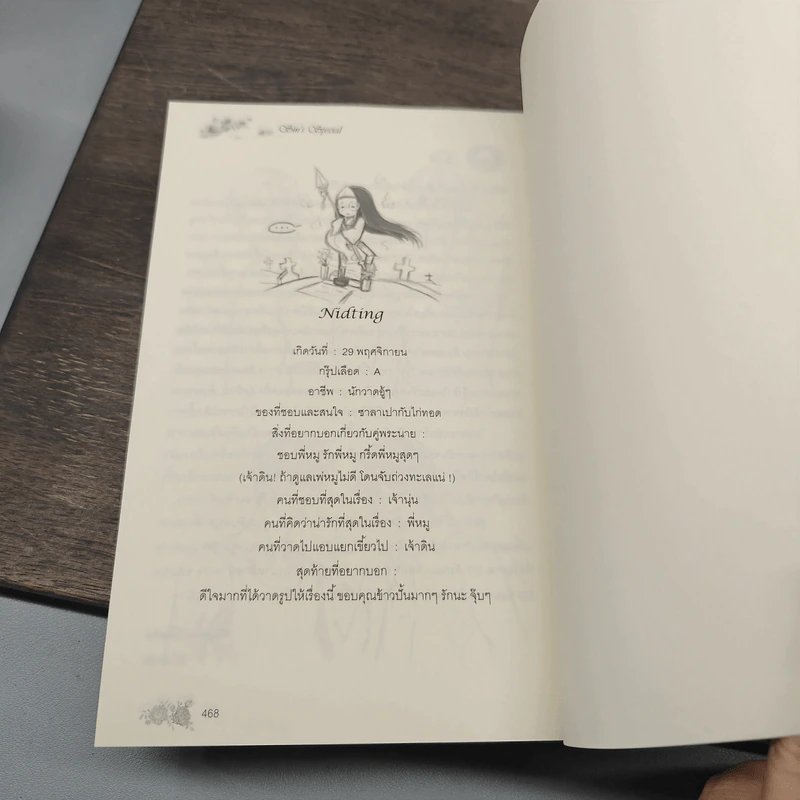 Sin's Special
...
Nidting
เกิดวันที่ : 29 พฤศจิกายน
กรุ๊ปเลือด : A
อาชีพ : นักวาดอู้ๆ
ของที่ชอบและสนใจ : ซาลาเปากับไก่ทอด
สิ่งที่อยากบอกเกี่ยวกับคู่พระนาย :
ชอบพี่หมู รักพี่หมู กรี้ดพี่หมูสุดๆ
(เจ้าดิน! ถ้าดูแลเพ่หมูไม่ดี โดนจับถ่วงทะเลแน่ !)
คนที่ชอบที่สุดในเรื่อง : เจ้านุ่น
คนที่คิดว่าน่ารักที่สุดในเรื่อง : พี่หมู
คนที่วาดไปแอบแยกเขี้ยวไป : เจ้าดิน
สุดท้ายที่อยากบอก :
ดีใจมากที่ได้วาดรูปให้เรื่องนี้ ขอบคุณข้าวปั้นมากๆ รักนะ จุ๊บๆ
468